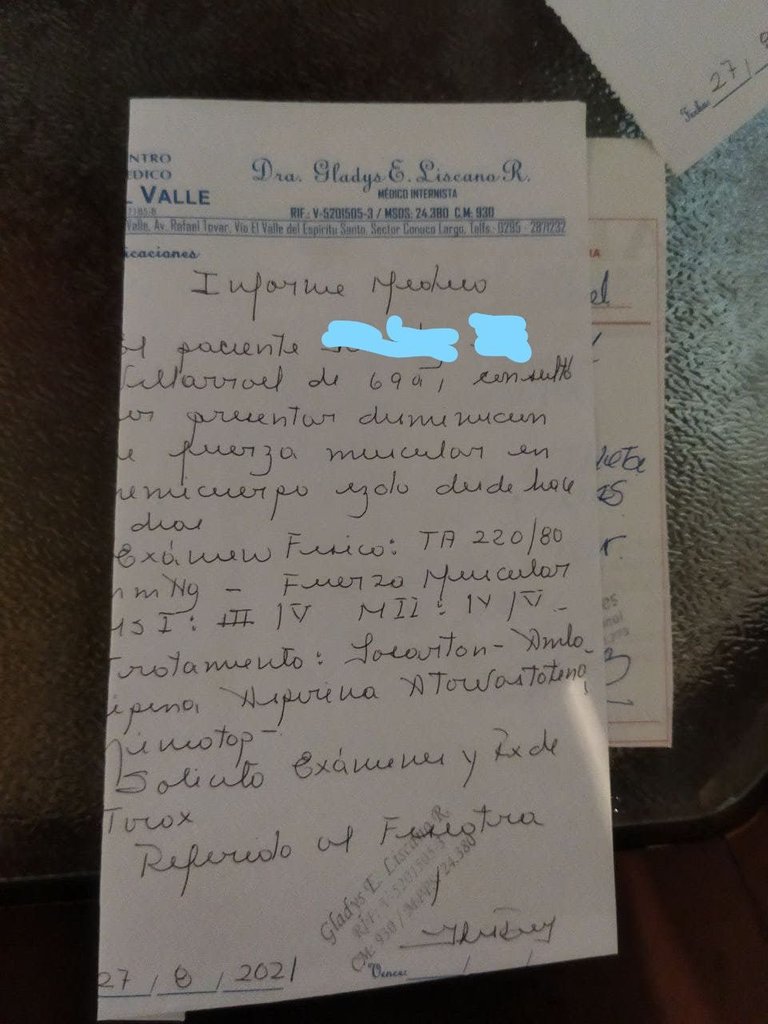 NTRO
EDICO
L VALLE
7185-8
Dra. Gladys E. Liscano R.
MÉDICO INTERNISTA
RIF.: V-5201505-3 / MSDS: 24.380 C.M: 930
Valle, Av. Rafael Tovar, Vía El Valle del Espíritu Santo, Sector Conuco Largo, Telfs.: 0295 - 2871232
icaciones
Informe Medico
El paciente
Villarroel de 69a, consulto
or presentar disminucion
e fuerza muscular en
hemicuerpo izdo desde hace
dias
Exámen Fisico: TA 220/80
mmHg - Fuerza Muscular
MSI: III/V MII: IV/V-
Tratamiento: Losartan- Amlo
ipina Aspirina Atorvastatina,
Solicito Exámenes y Rx de
Torax
Referido al Fisiatra
Gladys E. Liscano R.
RIF: V-5201505-3
CM: 930 / 24.380
27 / 8 / 2021
Vence: / /
Fecha: 27 /